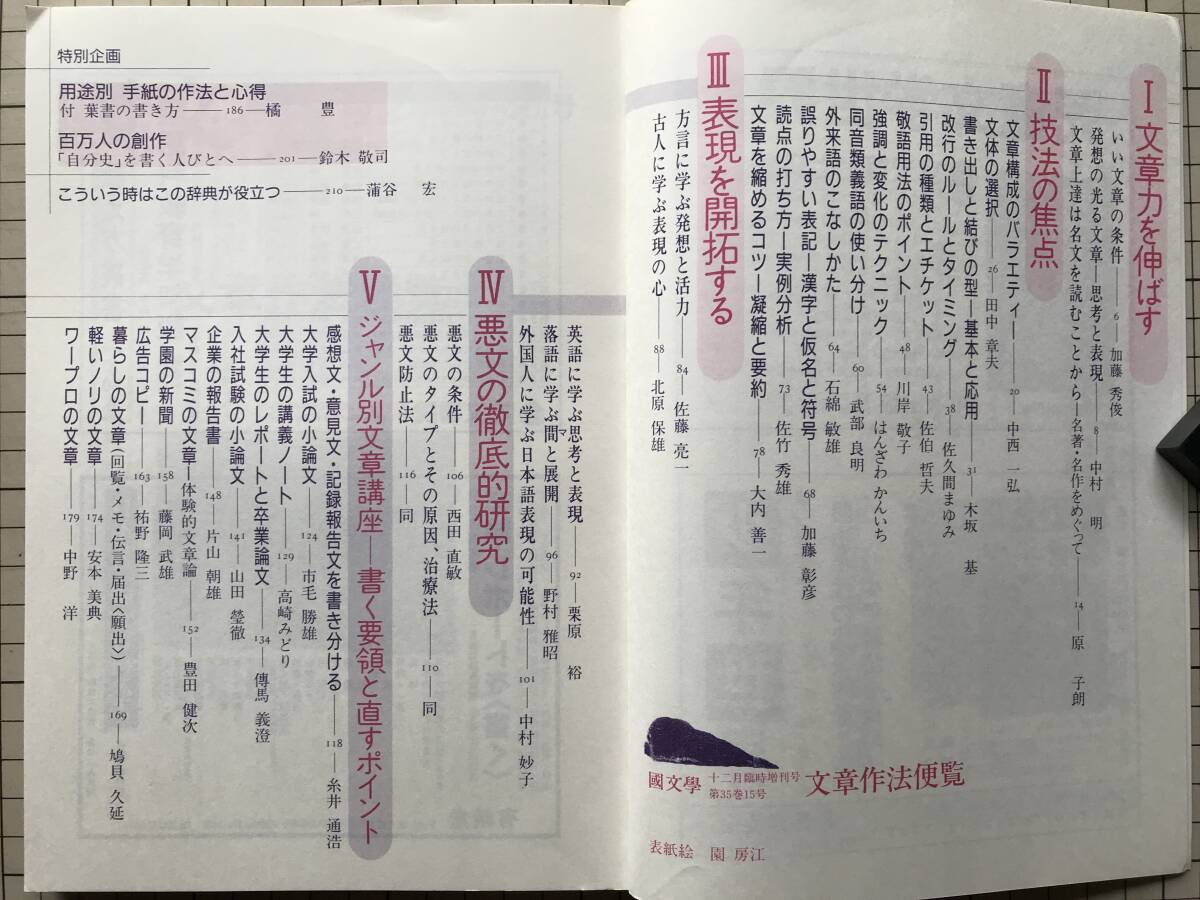 Ⅰ 文章力を伸ばす
いい文章の条件——6—加藤 秀俊
発想の光る文章—思考と表現——8—中村 明
文章上達は名文を読むことから—名著・名作をめぐって——14—原 子朗
Ⅱ 技法の焦点
文章構成のバラエティー——20—中西 一弘
文体の選択——26—田中 章夫
書き出しと結びの型—基本と応用——31—木坂 基
改行のルールとタイミング——38—佐久間まゆみ
引用の種類とエチケット——43—佐伯 哲夫
敬語用法のポイント——48—川岸 敬子
強調と変化のテクニック——54—はんざわ かんいち
同音類義語の使い分け——60—武部 良明
外来語のこなしかた——64—石綿 敏雄
誤りやすい表記—漢字と仮名と符号——68—加藤 彰彦
読点の打ち方—実例分析——73—佐竹 秀雄
文章を縮めるコツ—凝縮と要約——78—大内 善一
Ⅲ 表現を開拓する
方言に学ぶ発想と活力——84—佐藤 亮一
古人に学ぶ表現の心——88—北原 保雄
國文學 十二月臨時増刊号 第35巻15号 文章作法便覧
表紙絵 園 房江
英語に学ぶ思考と表現——92—栗原 裕
落語に学ぶ間マと展開——96—野村 雅昭
外国人に学ぶ日本語表現の可能性——101—中村 妙子
Ⅳ 悪文の徹底的研究
悪文の条件——106—西田 直敏
悪文のタイプとその原因、治療法——110—同
悪文防止法——116—同
Ⅴ ジャンル別文章講座——書く要領と直すポイント
感想文・意見文・記録報告文を書き分ける——118—糸井 通浩
大学入試の小論文——124—市毛 勝雄
大学生の講義ノート——129—高崎みどり
大学生のレポートと卒業論文——134—傳馬 義澄
入社試験の小論文——141—山田 瑩徹
企業の報告書——148—片山 朝雄
マスコミの文章—体験的文章論——152—豊田 健次
学園の新聞——158—藤岡 武雄
広告コピー——163—祐野 隆三
暮らしの文章(回覧・メモ・伝言・届出〈願出〉)——169—鳩貝 久延
軽いノリの文章——174—安本 美典
ワープロの文章——179—中野 洋
特別企画
用途別 手紙の作法と心得
付 葉書の書き方——186—橘 豊
百万人の創作
「自分史」を書く人びとへ——201—鈴木 敬司
こういう時はこの辞典が役立つ——210—蒲谷 宏